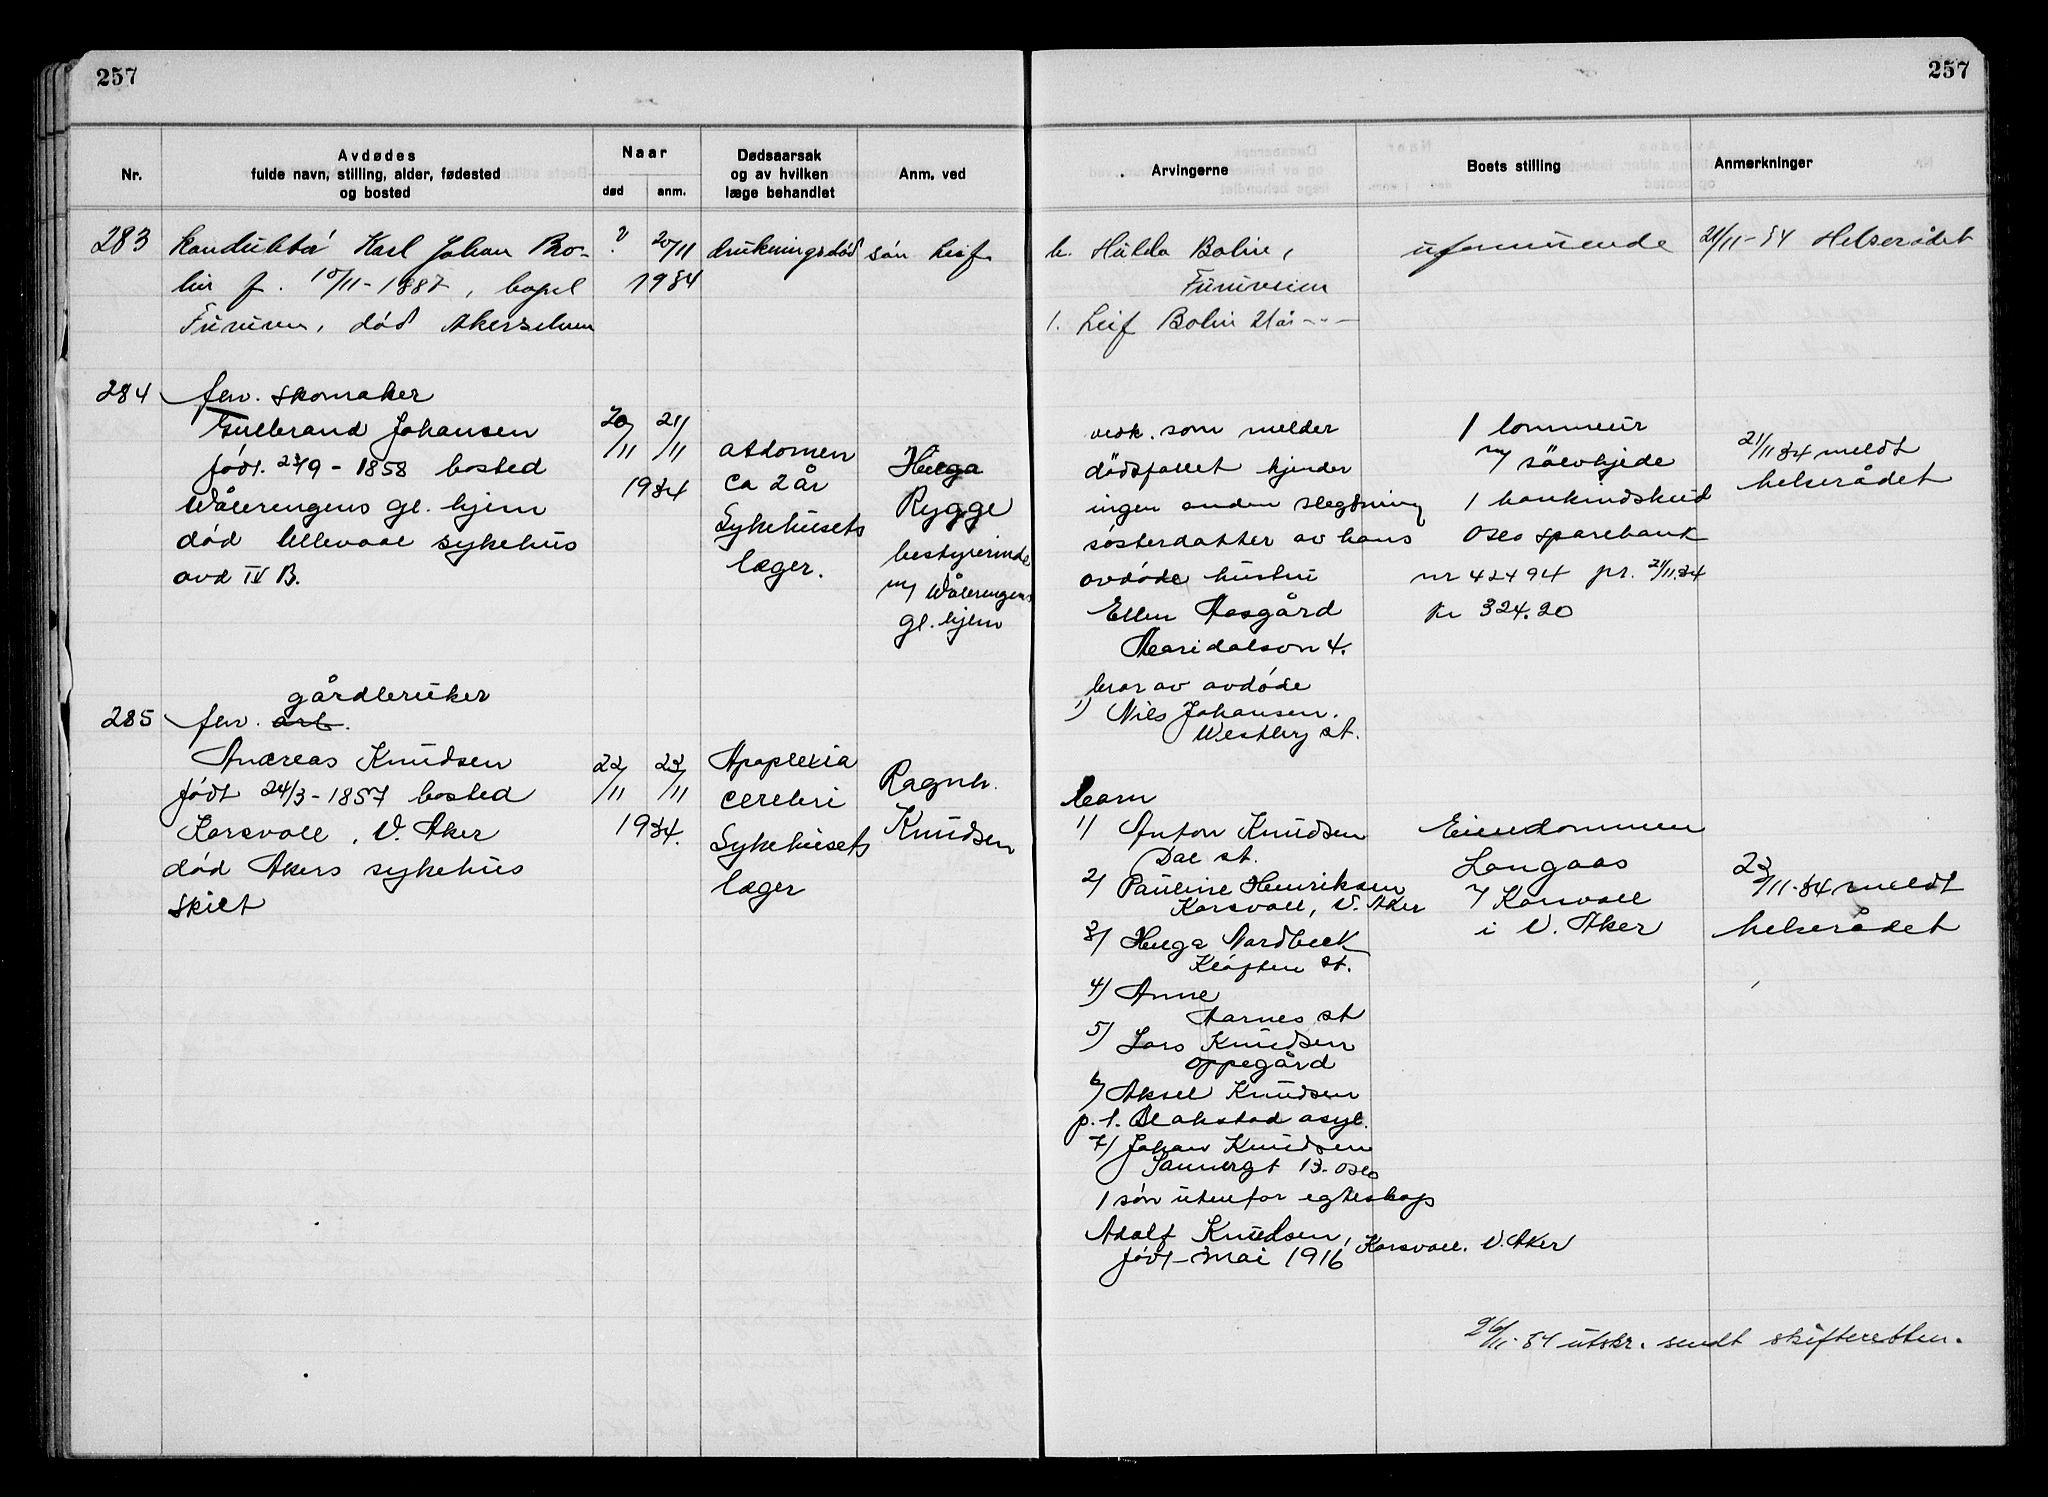 257
257
Nr.
Avdødes
fulde navn, stilling, alder, fødested
og bosted
Naar
død
anm.
Dødsaarsak
og av hvilken
læge behandlet
Anm. ved
Arvingerne
Boets stilling
Anmerkninger
283
Karl Johan Bo-
lin f. 10/11-1887, bopel
død Akerselven
?
20/11
1934
drukningsdød
søn Leif
h. Hulda Bolin,
Furuveien
1. Leif Bolin 21 år - - -
uformuende
21/11-34 Helserådet
284
fhv. skomaker
Gulbrand Johansen
født. 23/9 - 1858 bosted
Vålerengens gl. hjem
død Ullevaal sykehus
avd IV B.
20/11
21/11
1934
abdomen
ca 2 år
Sykehusets
læger.
Helga
Rygge
bestyrerinde
v/ Vålerengens
gl. hjem
vedk. som melder
dødsfallet kjender
ingen anden slegtning
søsterdatter av hans
avdøde hustru
Ellen Aasgård
Maridalsvn 4.
bror av avdøde
1) Nils Johansen.
Vestby st.
1 lommeur
m/ sølvkjede
1 bankindskud
Oslo sparebank
nr 42494 pr. 21/11.34
kr 324.20
21/11 34 meldt
helserådet
285
gårdbruker
fhv. arb.
Andreas Knudsen
født 24/3 - 1857 bosted
Korsvoll, V. Aker
død Akers sykehus
skilt
22/11
23/11
1934.
Apoplexia
cerebri
Sykehusets
læger
Ragnh.
Knudsen
barn
1) Anton Knudsen
Dal st.
2) Pauline Henriksen
Korsvoll, V. Aker
3) Helga Nordbeck
Kløften st.
4) Anne
Aarnes st
5) Lars Knudsen
Oppegård
6) Aksel Knudsen
p.t. Blakstad asyl.
7) Johan Knudsen
Sannergt 13. Oslo
1 søn utenfor egteskap
Adolf Knudsen, Korsvoll. V. Aker
født - mai 1916
Eiendommen
Langaas
Korsvoll
i V. Aker
23/11-34 meldt
helserådet
26/11-34 utskr. sendt skifteretten.